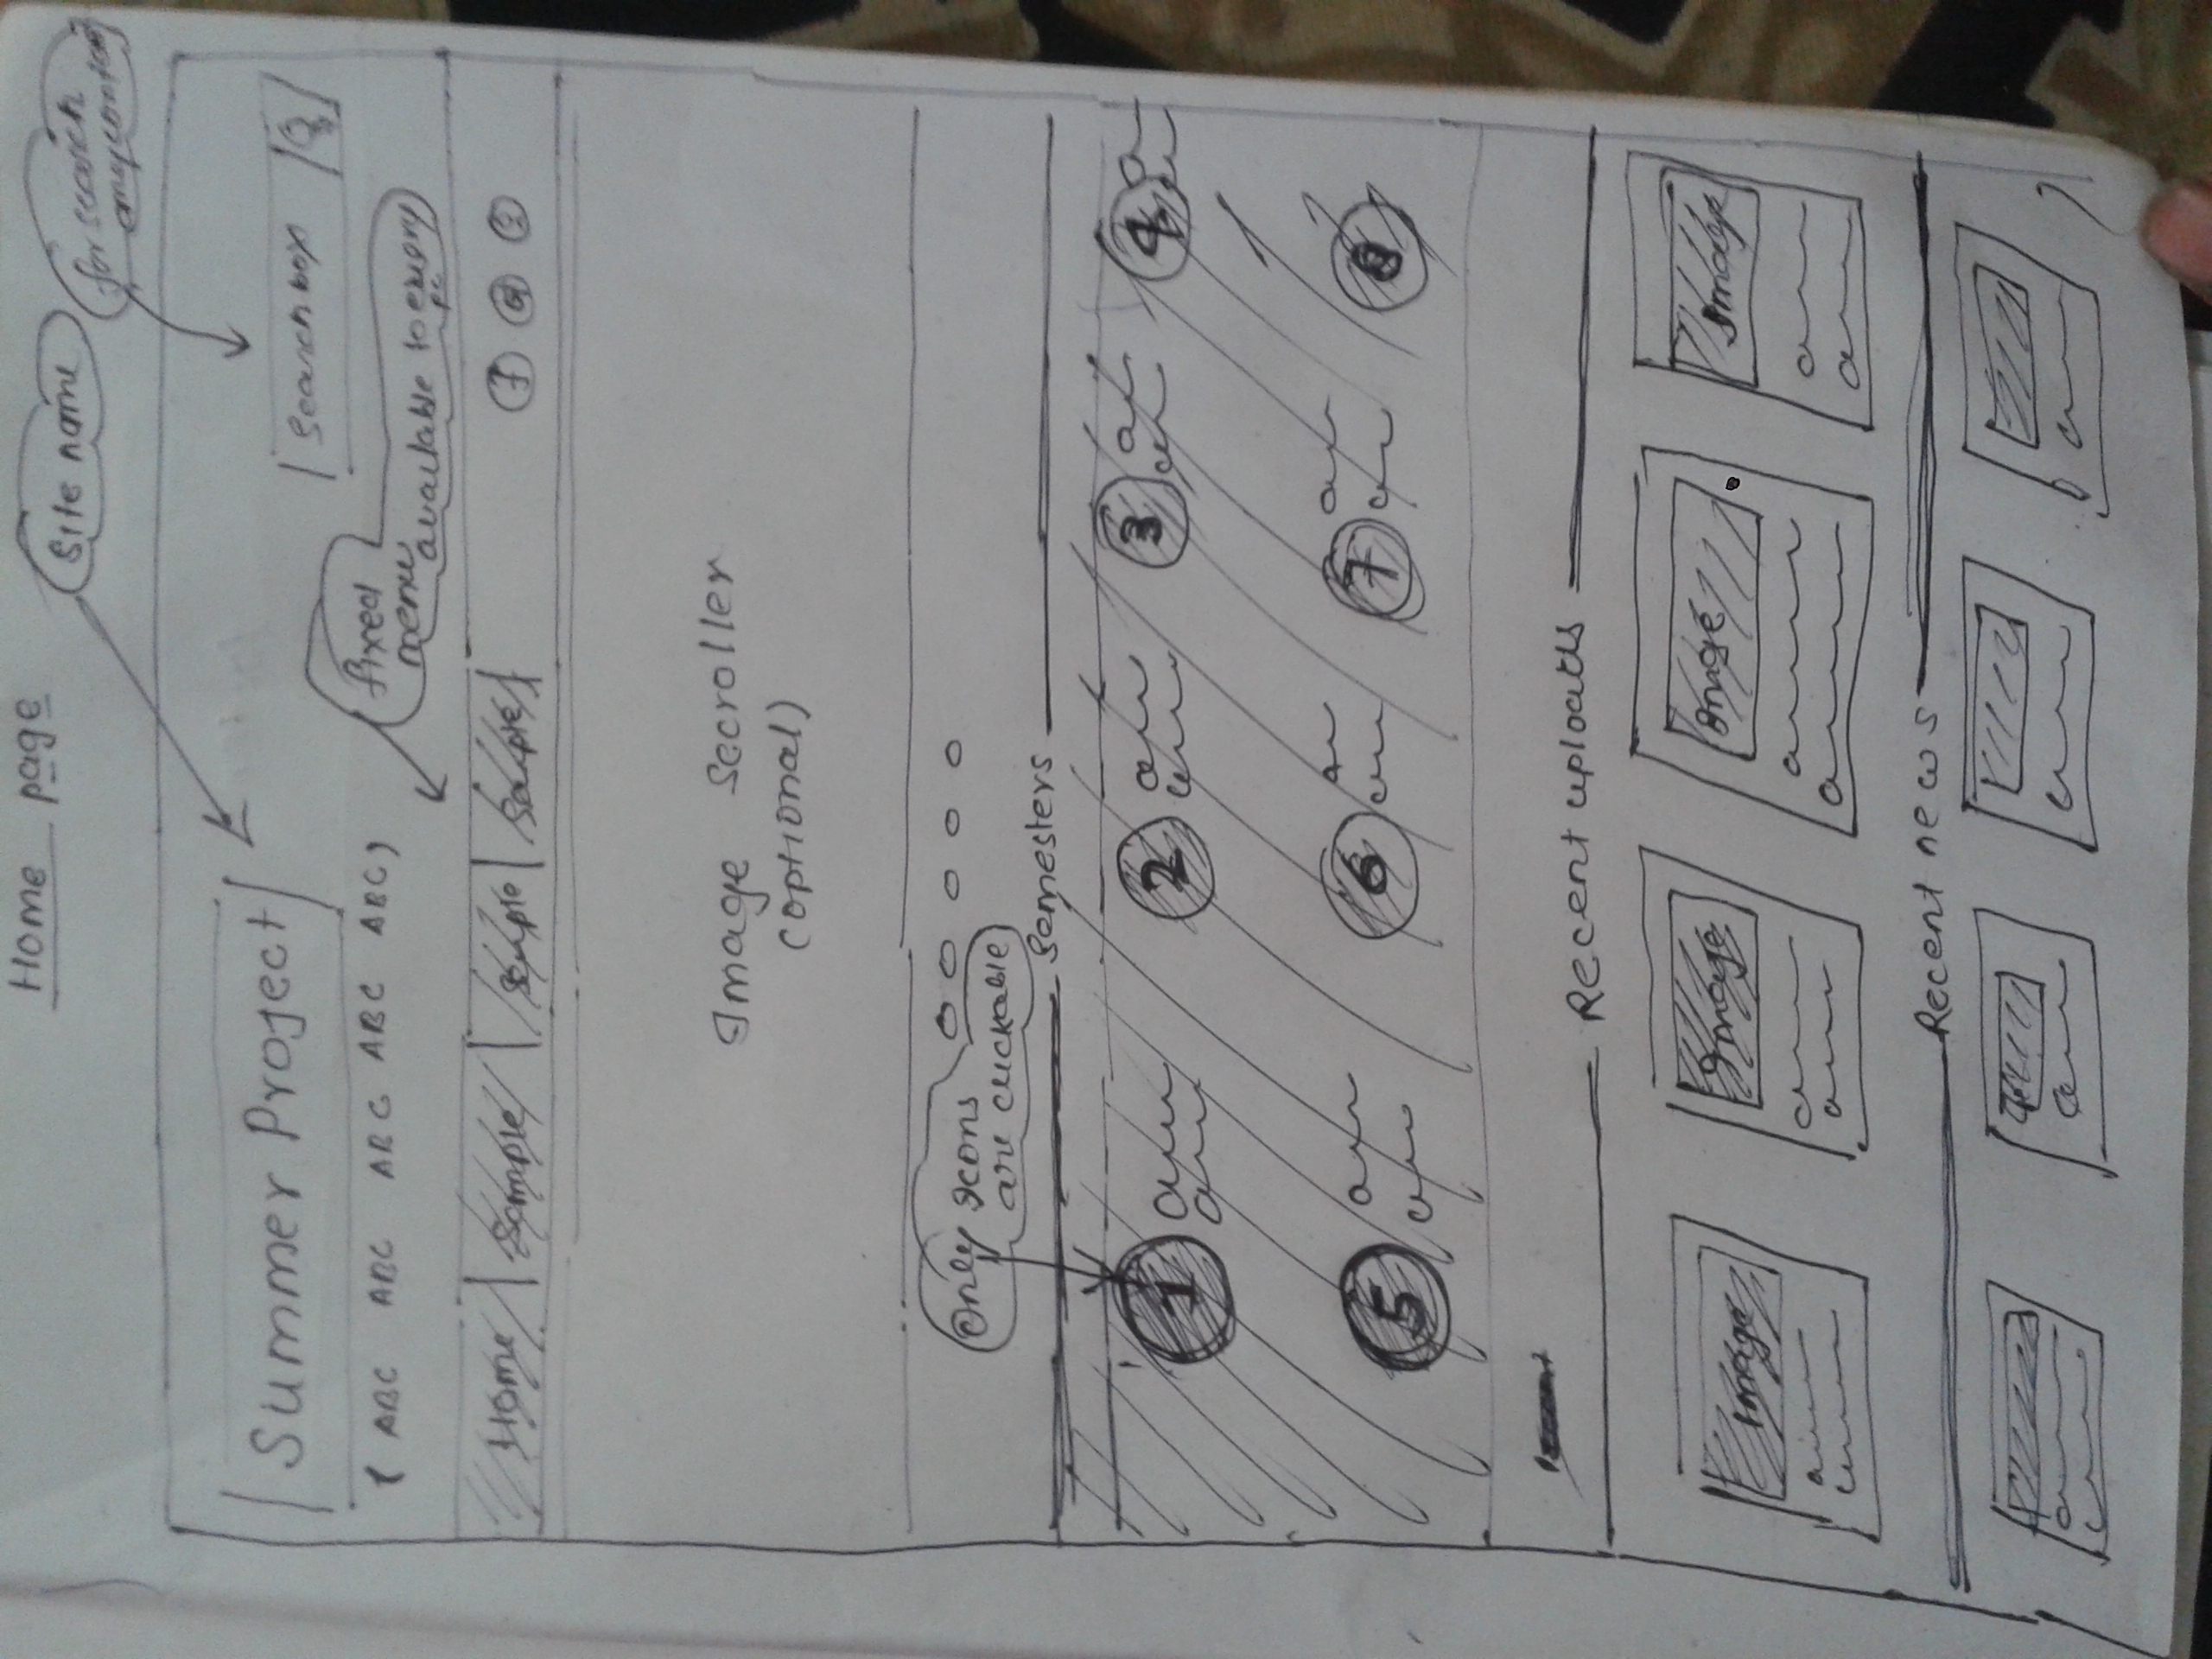 Home page
Site name
for search
any content
Summer Project
Search box
( ABC ABC ABC ABC ABC)
fixed
menu
available to every
Home
Sample
Sample
Sample
f
Image Scroller
(optional)
Only icons
are clickable
Semesters
1
2
3
4
5
6
7
8
Recent uploads
Image
Image
Image
Recent news